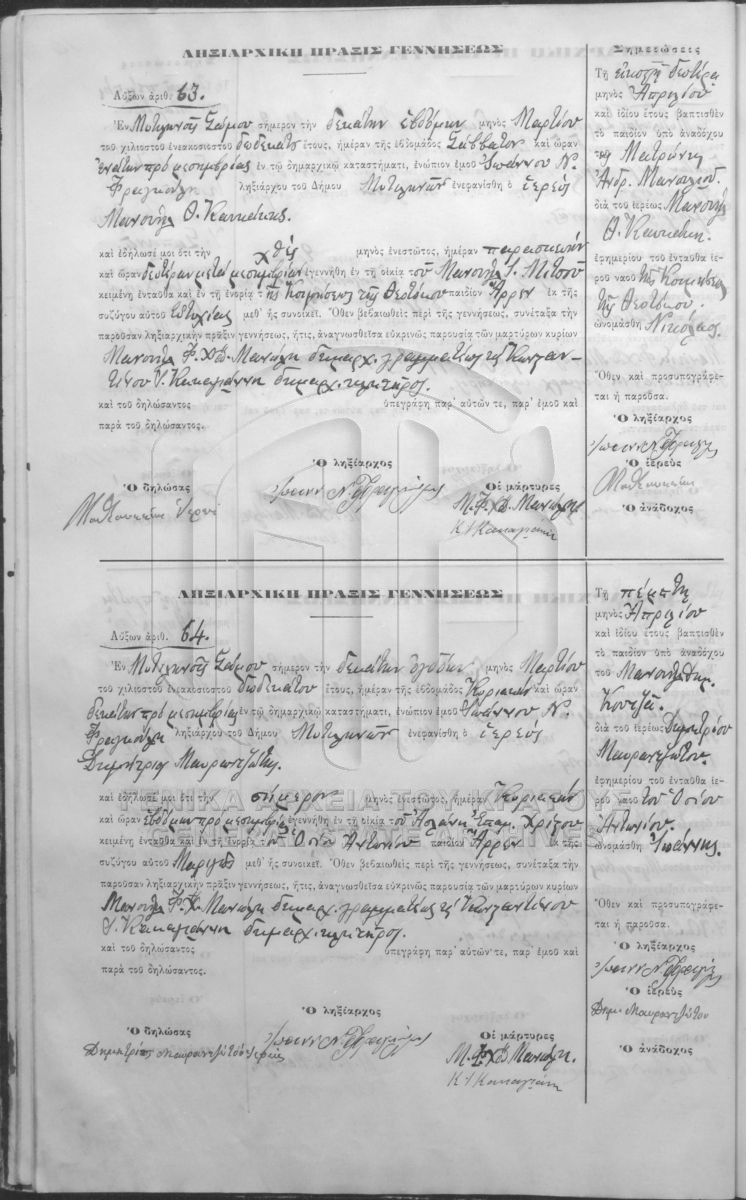 ΛΗΞΙΑΡΧΙΚΗ ΠΡΑΞΙΣ ΓΕΝΝΗΣΕΩΣ
Αὔξων ἀριθ. 63.
Ἐν Μυτιληνοῖς Σάμου σήμερον τὴν δεκάτην ἑβδόμην μηνὸς Μαρτίου
τοῦ χιλιοστοῦ ἐνεακοσιοστοῦ δωδεκάτου ἔτους, ἡμέραν τῆς ἑβδομάδος Σάββατον καὶ ὥραν
ἐνάτην πρὸ μεσημβρίας ἐν τῷ δημαρχικῷ καταστήματι, ἐνώπιον ἐμοῦ Ἰωάννου Ν.
Φραγκούλη ληξιάρχου τοῦ Δήμου Μυτιληνῶν ἐνεφανίσθη ὁ ἱερεὺς
Μανουὴλ Θ.
καὶ ἐδήλωσέ μοι ὅτι τὴν χθὲς μηνὸς ἐνεστῶτος, ἡμέραν παρασκευὴν
καὶ ὥραν δευτέραν μετὰ μεσημβρίαν ἐγεννήθη ἐν τῇ οἰκίᾳ τοῦ Μανουὴλ Ι. Μιτσοῦ
κειμένῃ ἐνταῦθα καὶ ἐν τῇ ἐνορίᾳ τῆς Κοιμήσεως τῆς Θεοτόκου παιδίον Ἄρρεν ἐκ τῆς
συζύγου αὐτοῦ Εὐτυχίας μεθ᾽ ἧς συνοικεῖ. Ὅθεν βεβαιωθεὶς περὶ τῆς γεννήσεως, συνέταξα τὴν
παροῦσαν ληξιαρχικὴν πρᾶξιν γεννήσεως, ἥτις, ἀναγνωσθεῖσα εὐκρινῶς παρουσίᾳ τῶν μαρτύρων κυρίων
Μανουὴλ Φ. Χ"Δ. Μανώλη δημαρχ. γραμματέως καὶ Κωνσταν-
τίνου Ι. Κακαγιάννη δημαρχ. κλητῆρος.
καὶ τοῦ δηλώσαντος ὑπεγράφη παρ᾽ αὐτῶν τε, παρ᾽ ἐμοῦ καὶ
παρὰ τοῦ δηλώσαντος.
Ὁ δηλώσας
Ὁ ληξίαρχος
Ἰωάνν. Ν. Φραγκούλης
Οἱ μάρτυρες
Μ. Φ. Χ"Δ. Μανώλης
Κ Ι Κακαγιάννης
Σημειώσεις
Τῇ εἰκοστῇ δευτέρᾳ
μηνὸς Ἀπριλίου
καὶ ἰδίου ἔτους βαπτισθὲν
τὸ παιδίον ὑπὸ ἀναδόχου
τῆς Ματρώνης
Ἀνδρ.
διὰ τοῦ ἱερέως Μανουὴλ
Θ.
ἐφημερίου τοῦ ἐνταῦθα ἱε-
ροῦ ναοῦ τῆς Κοιμήσεως
τῆς Θεοτόκου.
ὠνομάσθη Νικόλαος.
Ὅθεν καὶ προσυπογράφε-
ται ἡ παροῦσα.
Ὁ ληξίαρχος
Ἰωάνν. Ν. Φραγκούλης
Ὁ ἱερεὺς
Ὁ ἀνάδοχος
ΛΗΞΙΑΡΧΙΚΗ ΠΡΑΞΙΣ ΓΕΝΝΗΣΕΩΣ
Αὔξων ἀριθ. 64.
Ἐν Μυτιληνοῖς Σάμου σήμερον τὴν δεκάτην ὀγδόην μηνὸς Μαρτίου
τοῦ χιλιοστοῦ ἐνεακοσιοστοῦ δωδεκάτου ἔτους, ἡμέραν τῆς ἑβδομάδος Κυριακὴν καὶ ὥραν
δεκάτην πρὸ μεσημβρίας ἐν τῷ δημαρχικῷ καταστήματι, ἐνώπιον ἐμοῦ Ἰωάννου Ν.
Φραγκούλη ληξιάρχου τοῦ Δήμου Μυτιληνῶν ἐνεφανίσθη ὁ ἱερεὺς
Δημήτριος Μαυρατζώτης.
καὶ ἐδήλωσέ μοι ὅτι τὴν σήμερον μηνὸς ἐνεστῶτος, ἡμέραν Κυριακὴν
καὶ ὥραν ἑβδόμην πρὸ μεσημβρίας ἐγεννήθη ἐν τῇ οἰκίᾳ τοῦ Ἐπαμ. Χρίστου
κειμένῃ ἐνταῦθα καὶ ἐν τῇ ἐνορίᾳ τοῦ Ὁσίου Ἀντωνίου παιδίον Ἄρρεν ἐκ τῆς
συζύγου αὐτοῦ Μαριγῶς μεθ᾽ ἧς συνοικεῖ. Ὅθεν βεβαιωθεὶς περὶ τῆς γεννήσεως, συνέταξα τὴν
παροῦσαν ληξιαρχικὴν πρᾶξιν γεννήσεως, ἥτις, ἀναγνωσθεῖσα εὐκρινῶς παρουσίᾳ τῶν μαρτύρων κυρίων
Μανουὴλ Φ. Χ. Μανώλη δημαρχ. γραμματέως καὶ Κωνσταντίνου
Ι. Κακαγιάννη δημαρχ. κλητῆρος.
καὶ τοῦ δηλώσαντος ὑπεγράφη παρ᾽ αὐτῶν τε, παρ᾽ ἐμοῦ καὶ
παρὰ τοῦ δηλώσαντος.
Ὁ δηλώσας
Δημήτριος Μαυρατζώτης ἱερεὺς
Ὁ ληξίαρχος
Ἰωάνν. Ν. Φραγκούλης
Οἱ μάρτυρες
Μ. Φ. Χ"Δ Μανώλης.
Κ Ι Κακαγιάννης
Τῇ πέμπτῃ
μηνὸς Ἀπριλίου
καὶ ἰδίου ἔτους βαπτισθὲν
τὸ παιδίον ὑπὸ ἀναδόχου
τοῦ Μανουὴλ Δημ.
Κουτζᾶ.
διὰ τοῦ ἱερέως Δημητρίου
Μαυρατζώτου.
ἐφημερίου τοῦ ἐνταῦθα ἱε-
ροῦ ναοῦ τοῦ Ὁσίου
Ἀντωνίου.
ὠνομάσθη Ἰωάννης.
Ὅθεν καὶ προσυπογράφε-
ται ἡ παροῦσα.
Ὁ ληξίαρχος
Ἰωάνν. Ν. Φραγκούλης
Ὁ ἱερεὺς
Δημ. Μαυρατζώτου
Ὁ ἀνάδοχος
ΓΕΝΙΚΑ ΑΡΧΕΙΑ ΤΟΥ ΚΡΑΤΟΥΣ
GENERAL STATE ARCHIVES